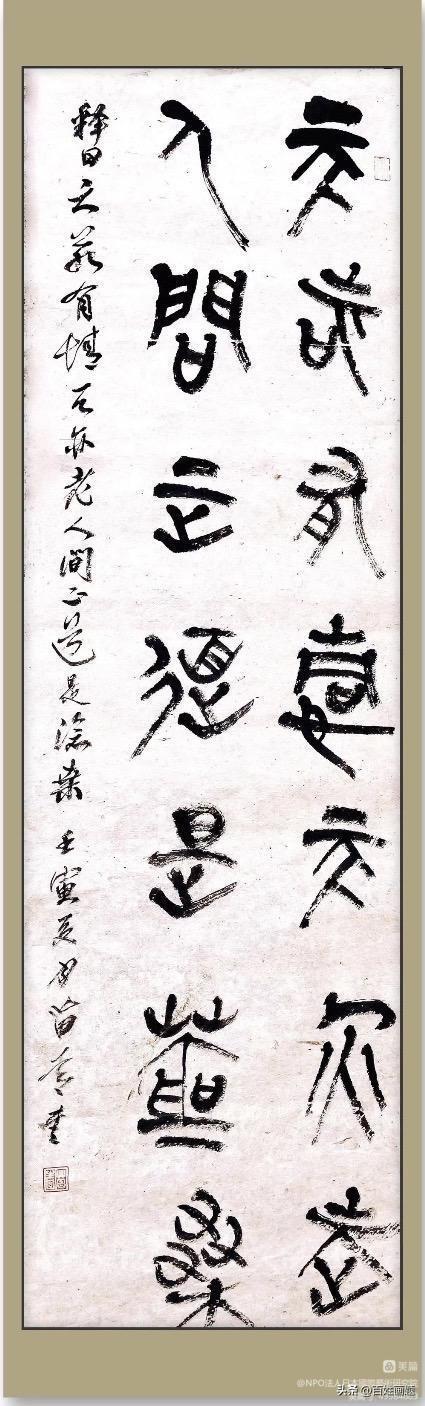 天若有情天亦老
人間正道是滄桑
釋曰天若有情天亦老人間正道是滄桑壬寅夏月
美篇
@NPO法人日本國際藝術研究院
头条 @百姓画廊